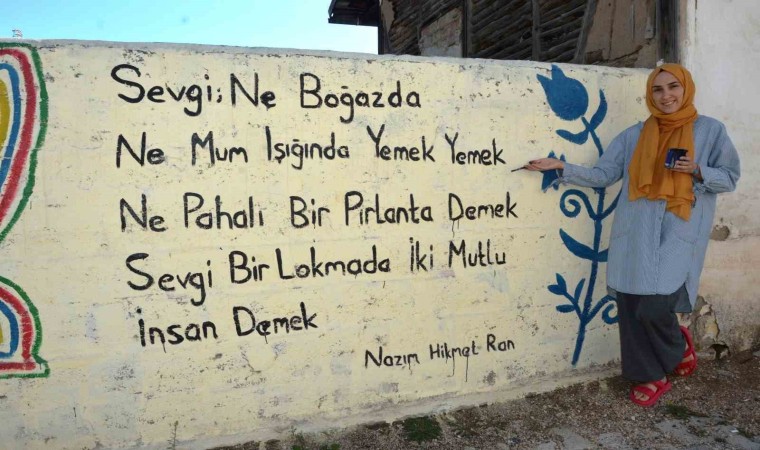 Sevgi; Ne Boğazda
Ne Mum Işığında Yemek Yemek
Ne Pahalı Bir Pırlanta Demek
Sevgi Bir Lokmada İki Mutlu
İnsan Demek
Nazım Hikmet Ran